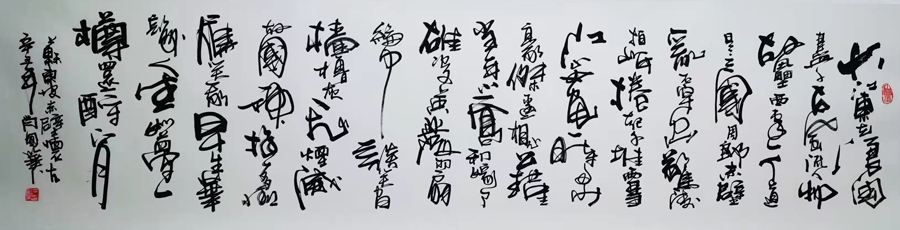 大江東去浪淘
盡千古風流人物
故壘西邊人道
是三國周郎赤壁
亂石穿空驚濤
拍岸捲起千堆雪
江山如画一時多少
豪傑遙想公瑾
當年小喬初嫁了
雄姿英發羽扇
綸巾談笑間
檣櫓灰飛煙滅
故國神遊多情
應笑我早生華
髮人生如夢一
樽還酹江月
蘇東坡赤壁懷古
辛丑年